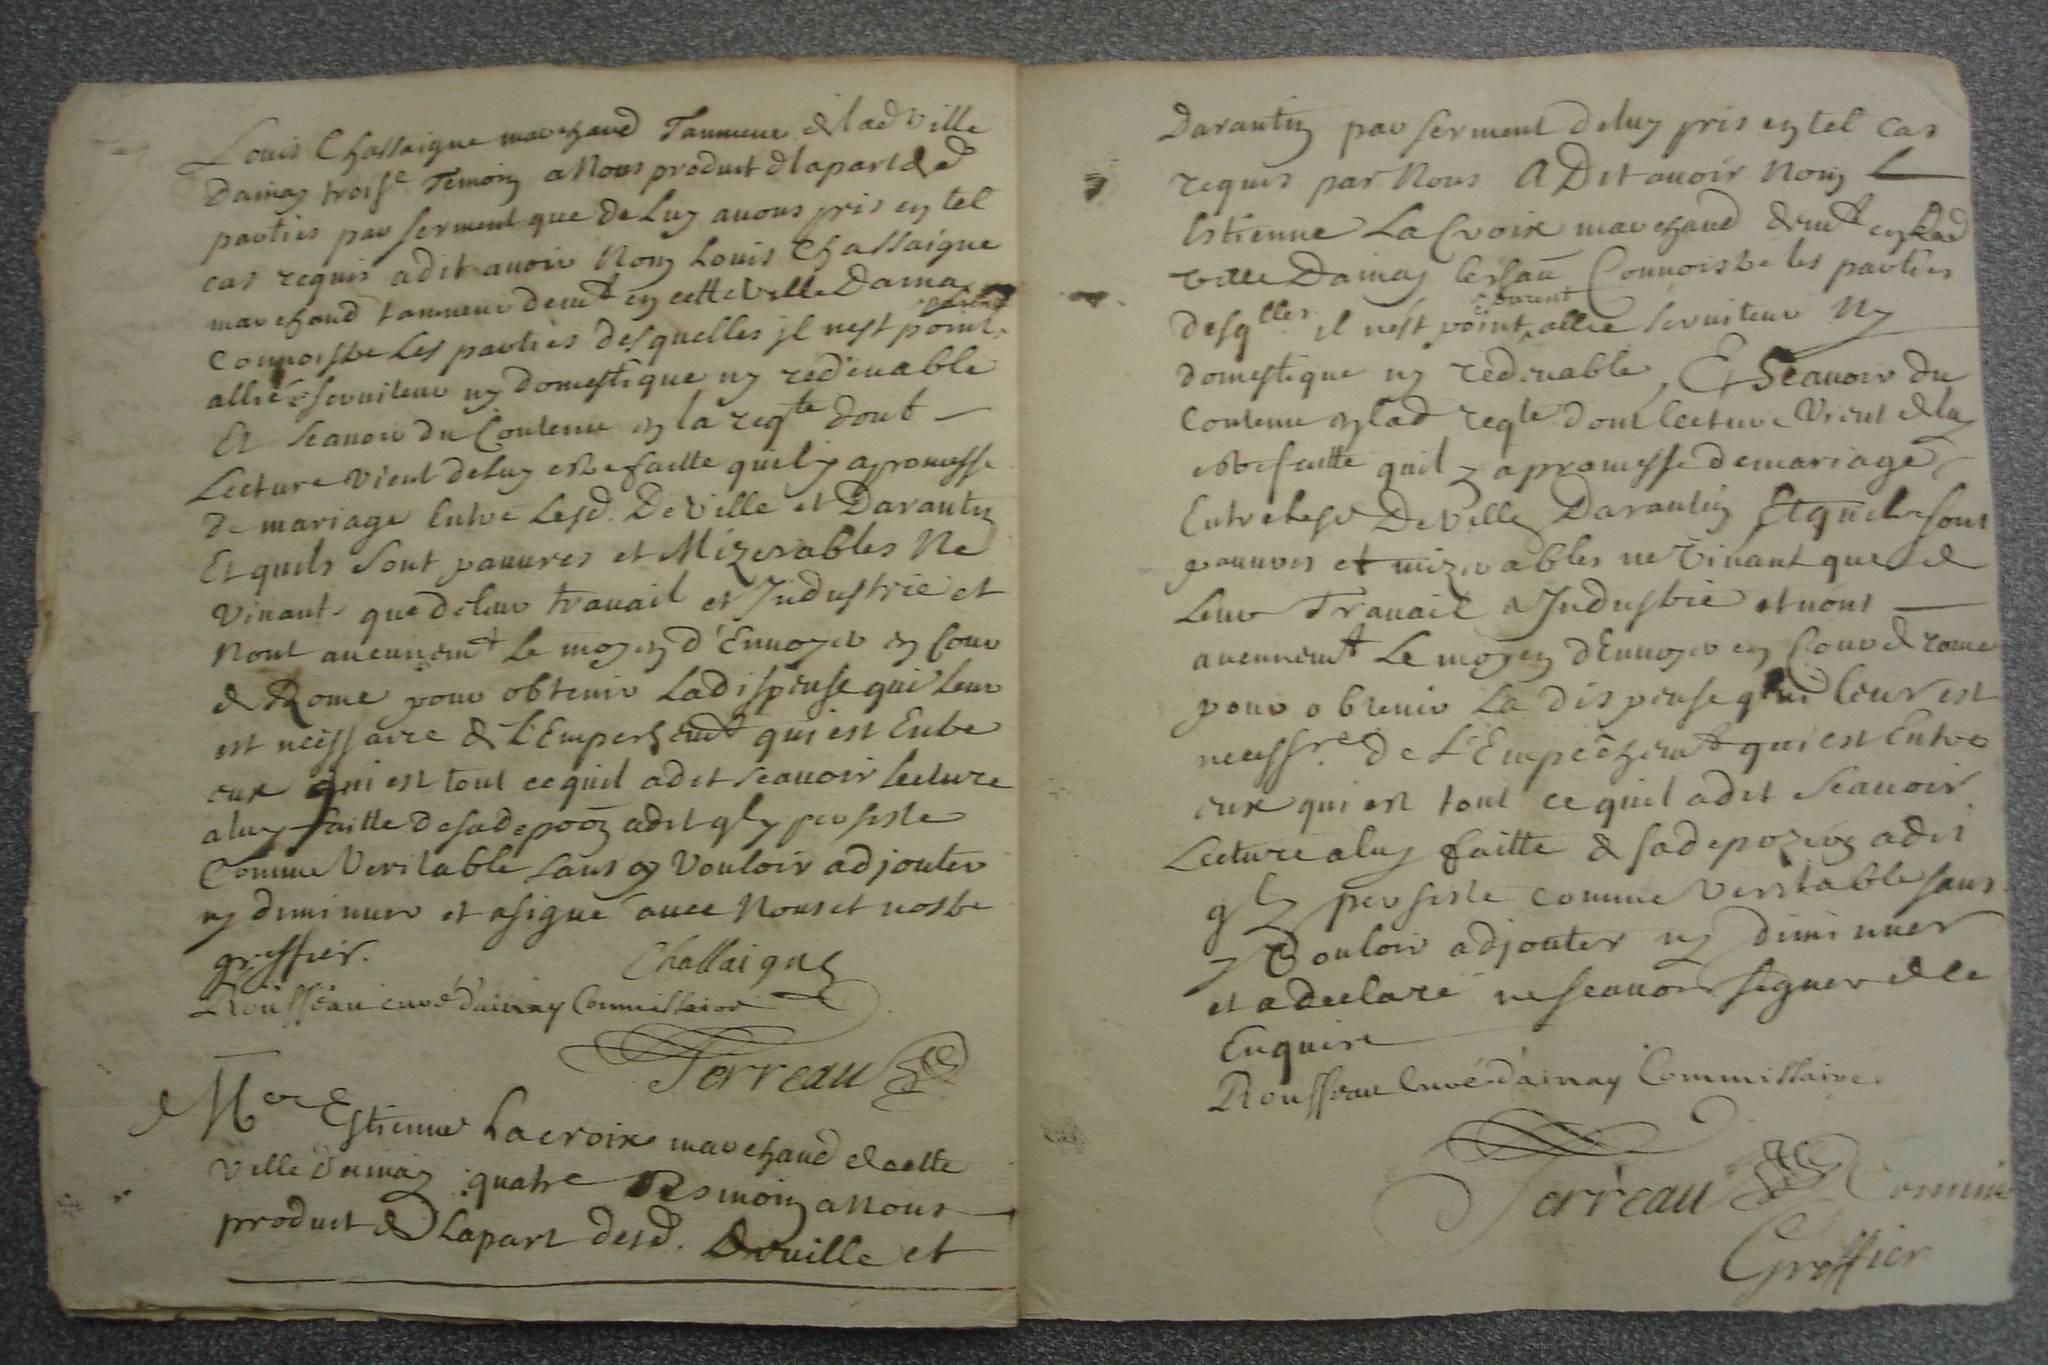 Louis Chassaigne marchand Tanneur de lad ville
Dainay trois.e Temoin a Nous produit de la part desd
parties par serment que de Luy auons pris en tel
cas requis a dit auoir Nom Louis Chassaigne
marchand tanneur demt en cette ville Dainay
Connoistre Les parties desquelles il nest point parent
allié seruiteur ny domestique ny redeuable
Et scauoir du Contenu en la reqte dont
Lecture vient de luy estre faitte quil y a promesse
de mariage Entre Lesd. Deville et Darantin
Et quils sont pauures et Mizerables Ne
Viuants que de leur trauail et Industrie et
Nont aucunemt Le moyen d'Enuoyer en Cour
de Rome pour obtenir La dispense qui Leur
est necessaire de L'Empeschemt qui est Entre
eux qui est tout ce quil a dit scauoir Lecture
a luy faitte de sa depoon a dit ql y persiste
Comme Veritable sans y Vouloir adjouter
ny diminuer et a signé auec Nous et nostre
greffier. Chassaigne
Rousseau curé d'ainay Commissaire
Terreau
Mer Estienne Lacroix marchand de cette
ville dainay quatre Tesmoin a Nous
produit de La part desd. Deuille et
Darantin par serment de luy pris en tel cas
requis par Nous A Dit auoir Nom
Estienne La Croix marchand demt en lad
ville Dainay Connoistre les parties
desqlles il nest point parent allié seruiteur Ny
domestique ny redeuable, Et Scauoir du
Contenu en lad reqte dont lecture Vient de luy
estre faitte quil y a promesse de mariage
Entre lesd DeVille Darantin Et quils sont
pauures et mizerables ne Viuant que de
Leur Trauail et Industrie et nont
aucunemt Le moyen dEnuoyer en Cour de rome
pour obtenir La dispense qui leur est
necessre. de L'Empeschemt qui est Entre
eux qui est tout ce quil a dit Scauoir
Lecture a luy faitte de sa depozion a dit
ql y persiste comme veritable sans
y Vouloir adjouter ny diminuer
et a declaré ne scauoir signer de ce
Enquire
Rousseau Curé d'ainay Commissaire.
Terreau Commis
Greffier